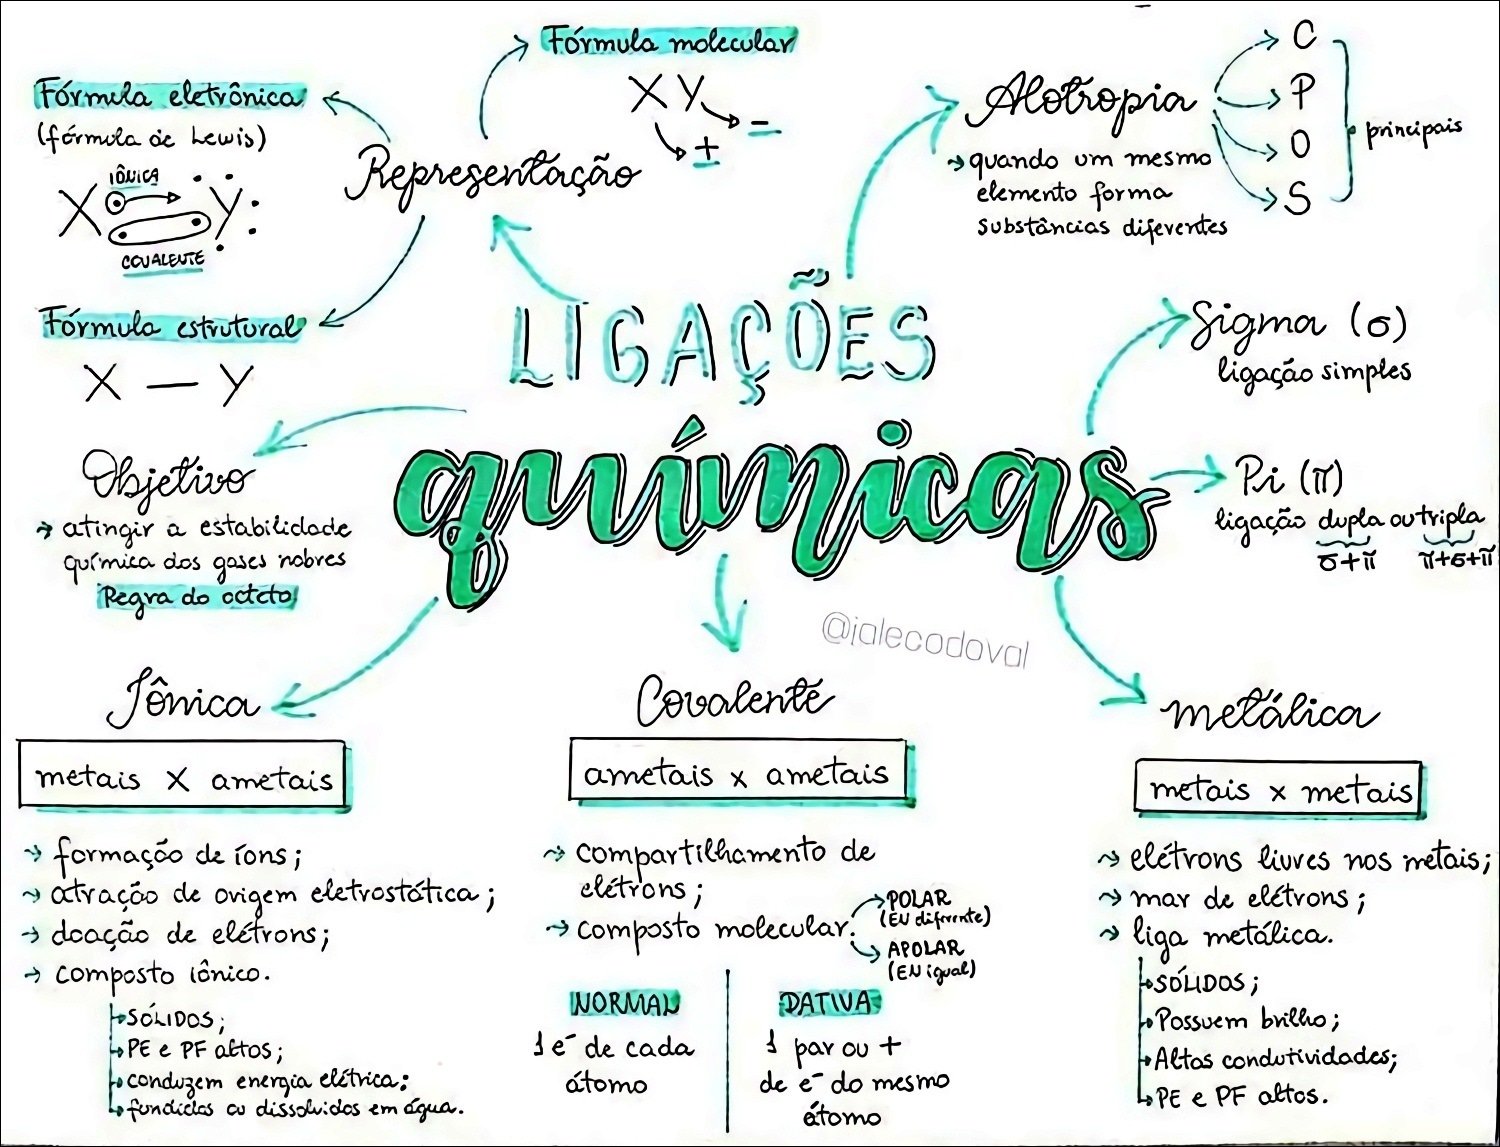 Fórmula molecular
X Y
-
+
Fórmula eletrônica
(fórmula de Lewis)
IÔNICA
X Y
COVALENTE
Representação
Fórmula estrutural
X — Y
Alotropia
→ quando um mesmo
elemento forma
substâncias diferentes
C
P
O
S
principais
LIGAÇÕES
químicas
Sigma (σ)
ligação simples
Pi (π)
ligação dupla ou tripla
σ+π
π+σ+π
Objetivo
→ atingir a estabilidade
química dos gases nobres
Regra do octeto
@jalecodoval
Iônica
metais X ametais
→ formação de íons;
→ atração de origem eletrostática;
→ doação de elétrons;
→ composto iônico.
SÓLIDOS;
PE e PF altos;
conduzem energia elétrica;
fundidos ou dissolvidos em água.
Covalente
ametais x ametais
→ compartilhamento de
elétrons;
→ composto molecular.
POLAR
(EN diferente)
APOLAR
(EN igual)
NORMAL
1 e⁻ de cada
átomo
DATIVA
1 par ou +
de e⁻ do mesmo
átomo
metálica
metais x metais
→ elétrons livres nos metais;
→ mar de elétrons;
→ liga metálica.
SÓLIDOS;
Possuem brilho;
Altas condutividades;
PE e PF altos.